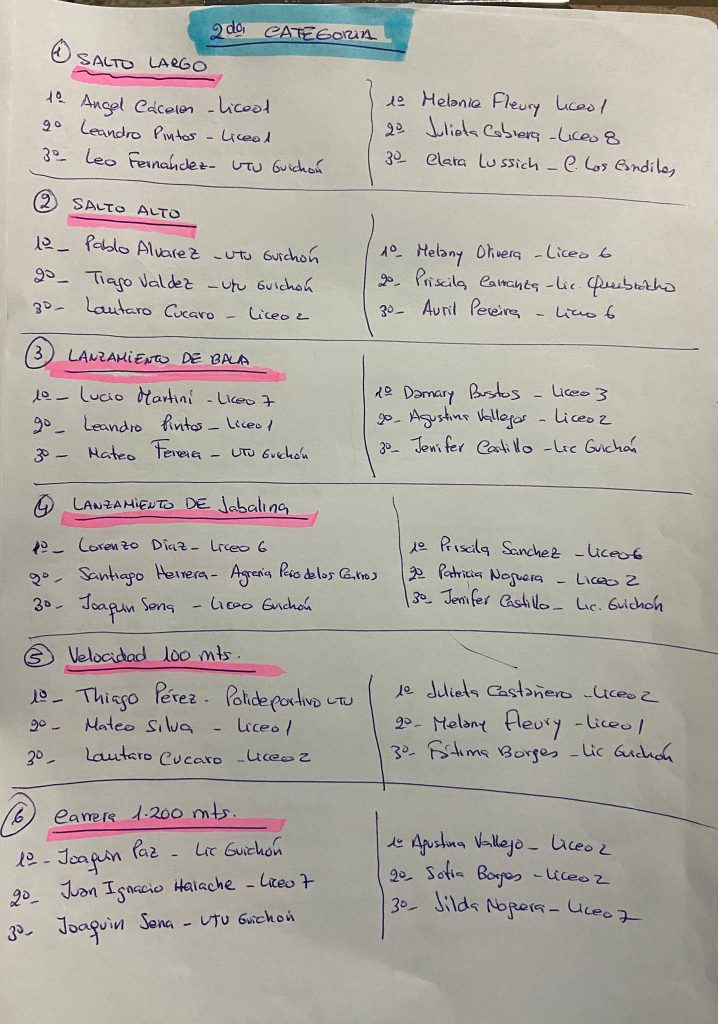 2da CATEGORIA
1 SALTO LARGO
1º Angel Cáceres - Liceo 1
2º Leandro Pintos - Liceo 1
3º Leo Fernández - UTU Guichón
1º Melanie Fleury Liceo 1
2º Julieta Cabrera - Liceo 8
3º Clara Lussich - C. Los Candiles
2 SALTO ALTO
1º - Pablo Alvarez - UTU Guichón
2º - Tiago Valdez - UTU Guichón
3º - Lautaro Cucaro - Liceo 2
1º - Melany Olivera - Liceo 6
2º - Priscila Carranza - Lic. Quebracho
3º - Avril Pereira - Liceo 6
3 LANZAMIENTO DE BALA
1º - Lucio Martiní - Liceo 7
2º - Leandro Pintos - Liceo 1
3º - Mateo Fereira - UTU Guichón
1º Damary Bustos - Liceo 3
2º - Agustina Vallegos - Liceo 2
3º - Jenifer Castillo - Lic Guichón
4 LANZAMIENTO DE Jabalina
1º - Lorenzo Díaz - Liceo 6
2º - Santiago Herrera - Agraria Paso de los Carros
3º - Joaquin Sena - Liceo Guichón
1º Priscila Sanchez - Liceo 6
2º Patricia Noguera - Liceo 2
3º - Jenifer Castillo - Lic. Guichón
5 Velocidad 100 mts.
1º - Thiago Pérez - Polideportivo UTU
2º - Mateo Silva - Liceo 1
3º - Lautaro Cucaro - Liceo 2
1º Julieta Castañero - Liceo 2
2º - Melany Fleury - Liceo 1
3º - Fátima Borges - Lic Guichón
6 Carrera 1.200 mts.
1º - Joaquin Paz - Lic Guichón
2º Juan Ignacio - Liceo 7
3º - Joaquin Sena - UTU Guichón
1º Agustina Vallejo - Liceo 2
2º Sofia Borges - Liceo 2
3º - Jilda - Liceo 7